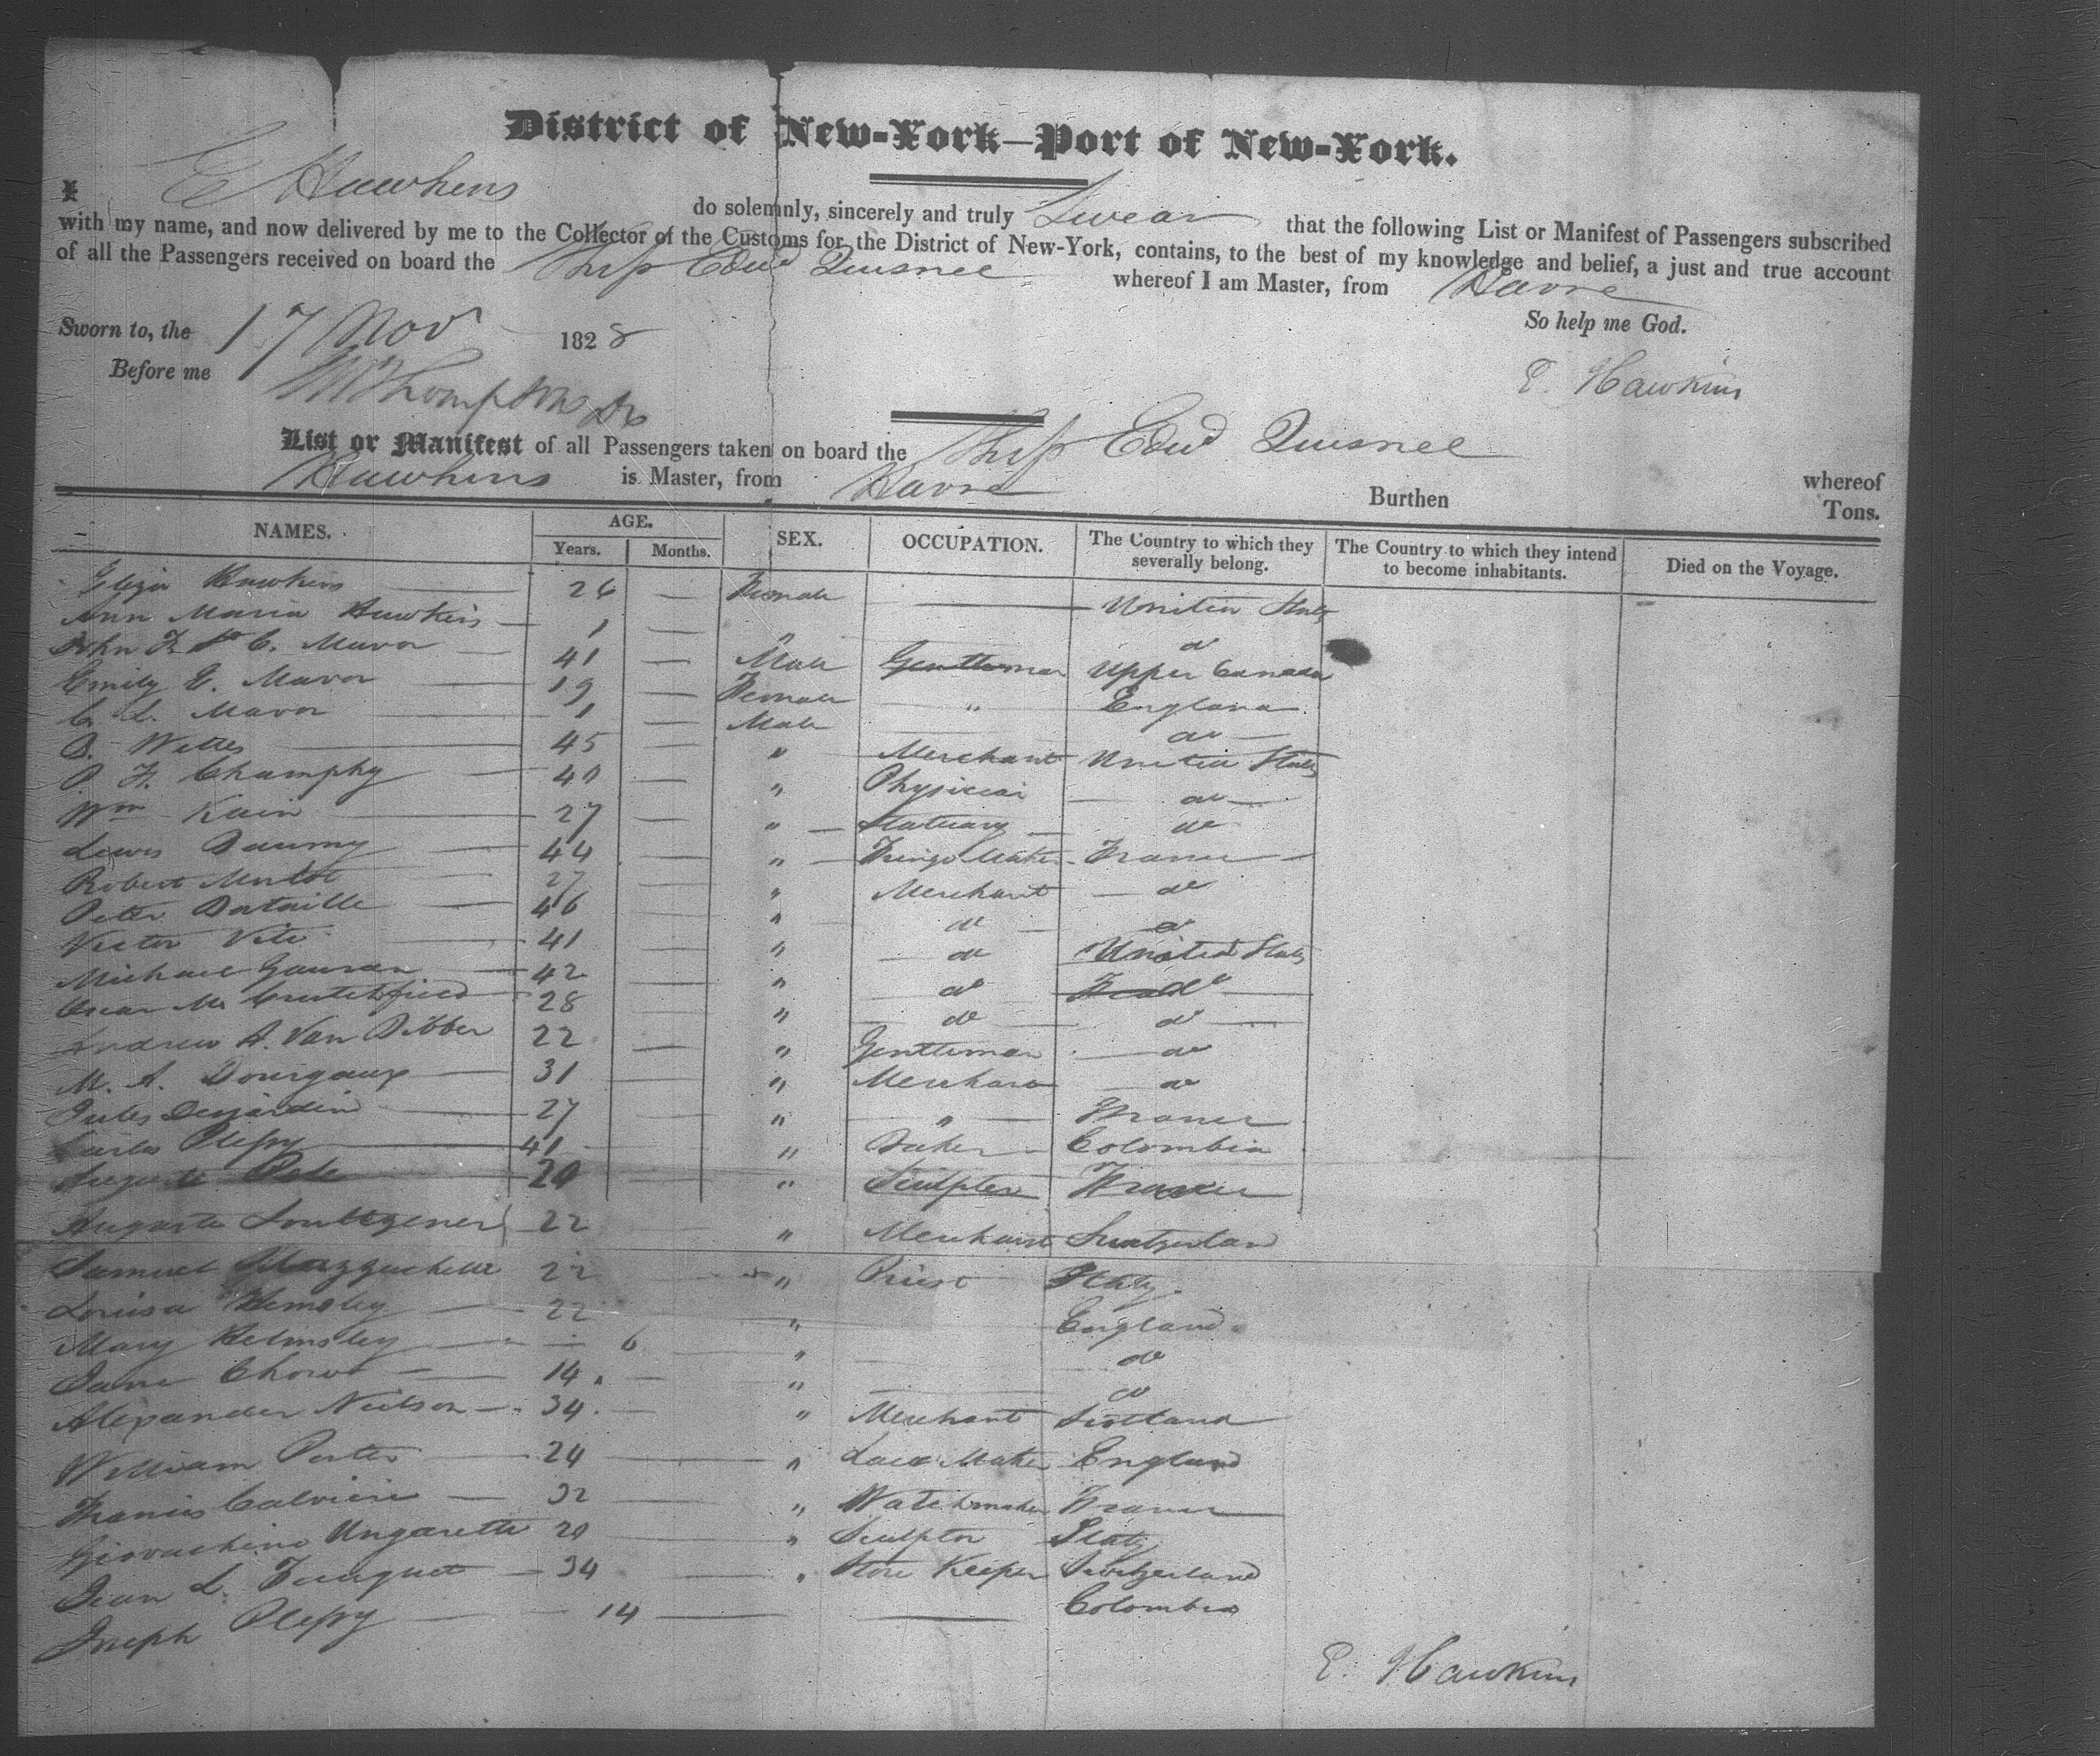 District of New-York—Port of New-York.
I E Hawkins do solemnly, sincerely and truly Swear that the following List or Manifest of Passengers subscribed
with my name, and now delivered by me to the Collector of the Customs for the District of New-York, contains, to the best of my knowledge and belief, a just and true account
of all the Passengers received on board the Ship Edwd Quesnel whereof I am Master, from Havre
So help me God.
Sworn to, the 17 Nov 1828
Before me
E. Hawkins
List or Manifest of all Passengers taken on board the Ship Edwd Quesnel whereof
Hawkins is Master, from Havre Burthen Tons.
NAMES. AGE. Years. Months. SEX. OCCUPATION. The Country to which they severally belong. The Country to which they intend to become inhabitants. Died on the Voyage.
Eliza Hawkins 26 Female United States
Ann Maria Hawkins 1 " do
John F. C. Mavor 41 Male Gentleman Upper Canada
Emily E. Mavor 19 Female " England
C. L. Mavor 1 Male do
B. 45 " Merchant United States
P. F. 40 " Physician do
Wm Kain 27 " Statuary do
Lewis Daumy 44 " Fringe Maker France
Robert 27 " Merchant do
Peter Bataille 46 " do do
Victor 41 " do United States
Michael 42 " do do
Oscar M. Crutchfield 28 " do do
Andrew A. Van Bibber 22 " Gentleman do
M. A. Dourgaux 31 " Merchant do
Jules Desjardin 27 " " France
Carlos Plessy 41 " Baker Colombia
Auguste 20 " Sculptor France
Auguste 22 " Merchant Switzerland
Samuel Mazzuchelli 22 " Priest Italy
Louisa Hemsley 22 " England
Mary Helmsley 6 " do
Jane 14 " do
Alexander Neilson 34 " Merchant Scotland
William Porter 24 " Lace Maker England
Francis Calviere 32 " Watchmaker France
Giovachino Ungaretti 20 " Sculptor Italy
Jean L. Fuaguet 34 " Store Keeper Switzerland
Joseph Plessy 14 Colombia
E. Hawkins